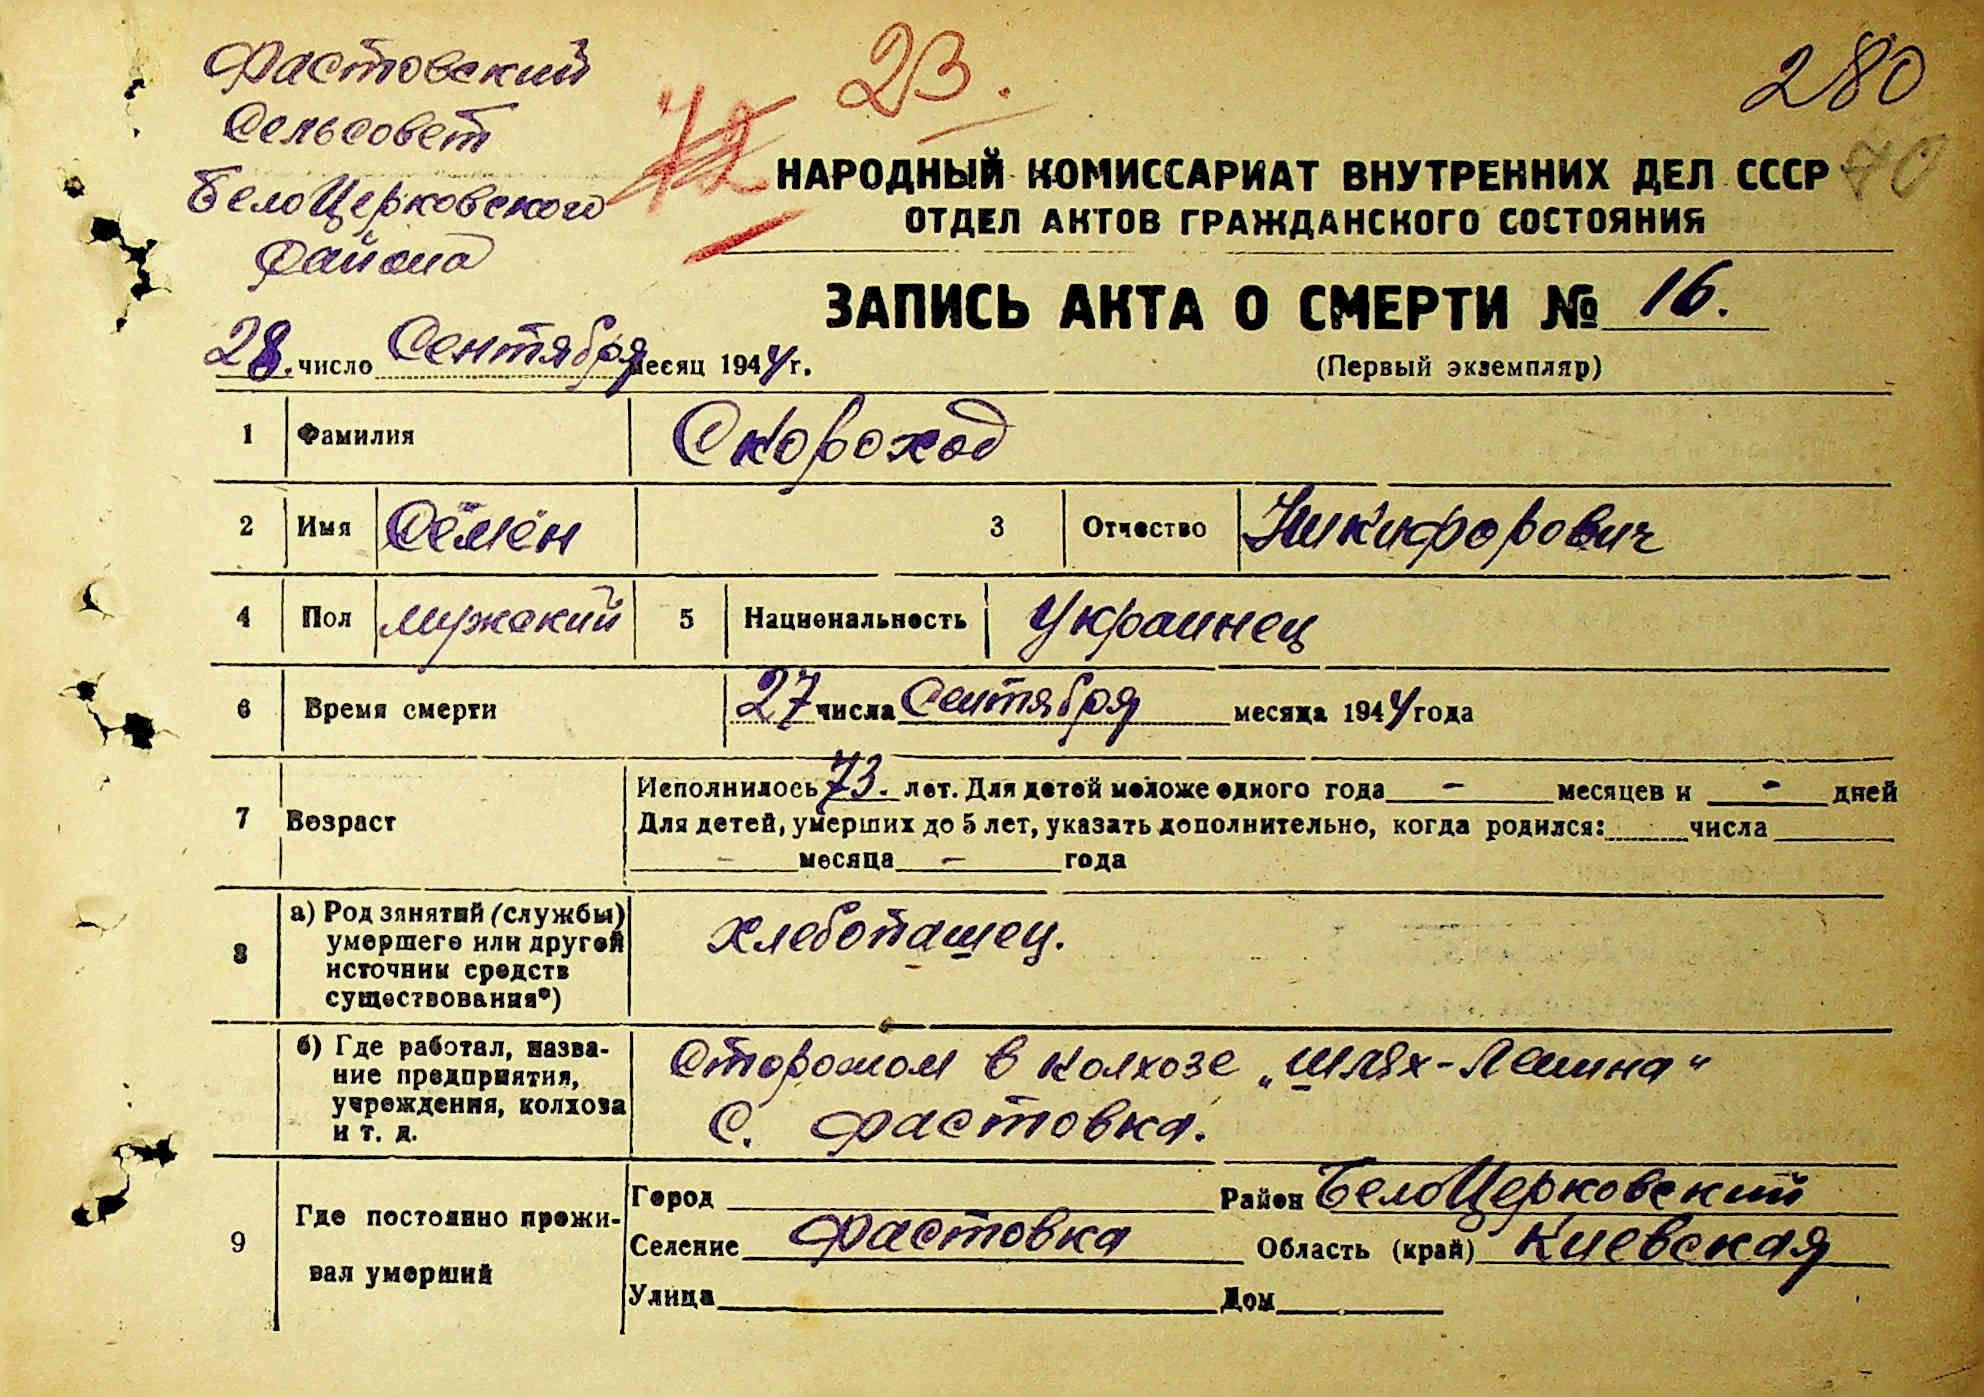 Фастовский
Сельсовет
БелоЦерковского
района
72
23.
280
70
НАРОДНЫЙ КОМИССАРИАТ ВНУТРЕННИХ ДЕЛ СССР
ОТДЕЛ АКТОВ ГРАЖДАНСКОГО СОСТОЯНИЯ
ЗАПИСЬ АКТА О СМЕРТИ № 16.
(Первый экземпляр)
28. число Сентября месяц 1944 г.
1 Фамилия Скороход
2 Имя Семён 3 Отчество Никифорович
4 Пол мужской 5 Национальность Украинец
6 Время смерти 27 числа Сентября месяца 1944 года
7 Возраст
Исполнилось 73. лет. Для детей моложе одного года - месяцев и - дней
Для детей, умерших до 5 лет, указать дополнительно, когда родился: числа
- месяца - года
8 а) Род занятий (службы) умершего или другой источник средств существования*)
хлебопашец.
б) Где работал, название предприятия, учреждения, колхоза и т. д.
Сторожом в колхозе „Шлях-Ленина"
с. Фастовка.
9 Где постоянно проживал умерший
Город Район БелоЦерковский
Селение Фастовка Область (край) Киевская
Улица Дом